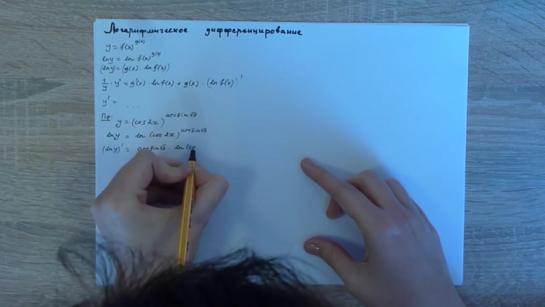 Логарифмическое дифференцирование
y = f(x)^g(x)
ln y = ln f(x)^g(x)
(ln y)' = (g(x) · ln f(x))'
1/y · y' = g'(x) · ln f(x) + g(x) · (ln f(x))'
y' = ...
Пр: y = (cos 2x)^arcsin√x
ln y = ln (cos 2x)^arcsin√x
(ln y)' = arcsin√x · ln (co